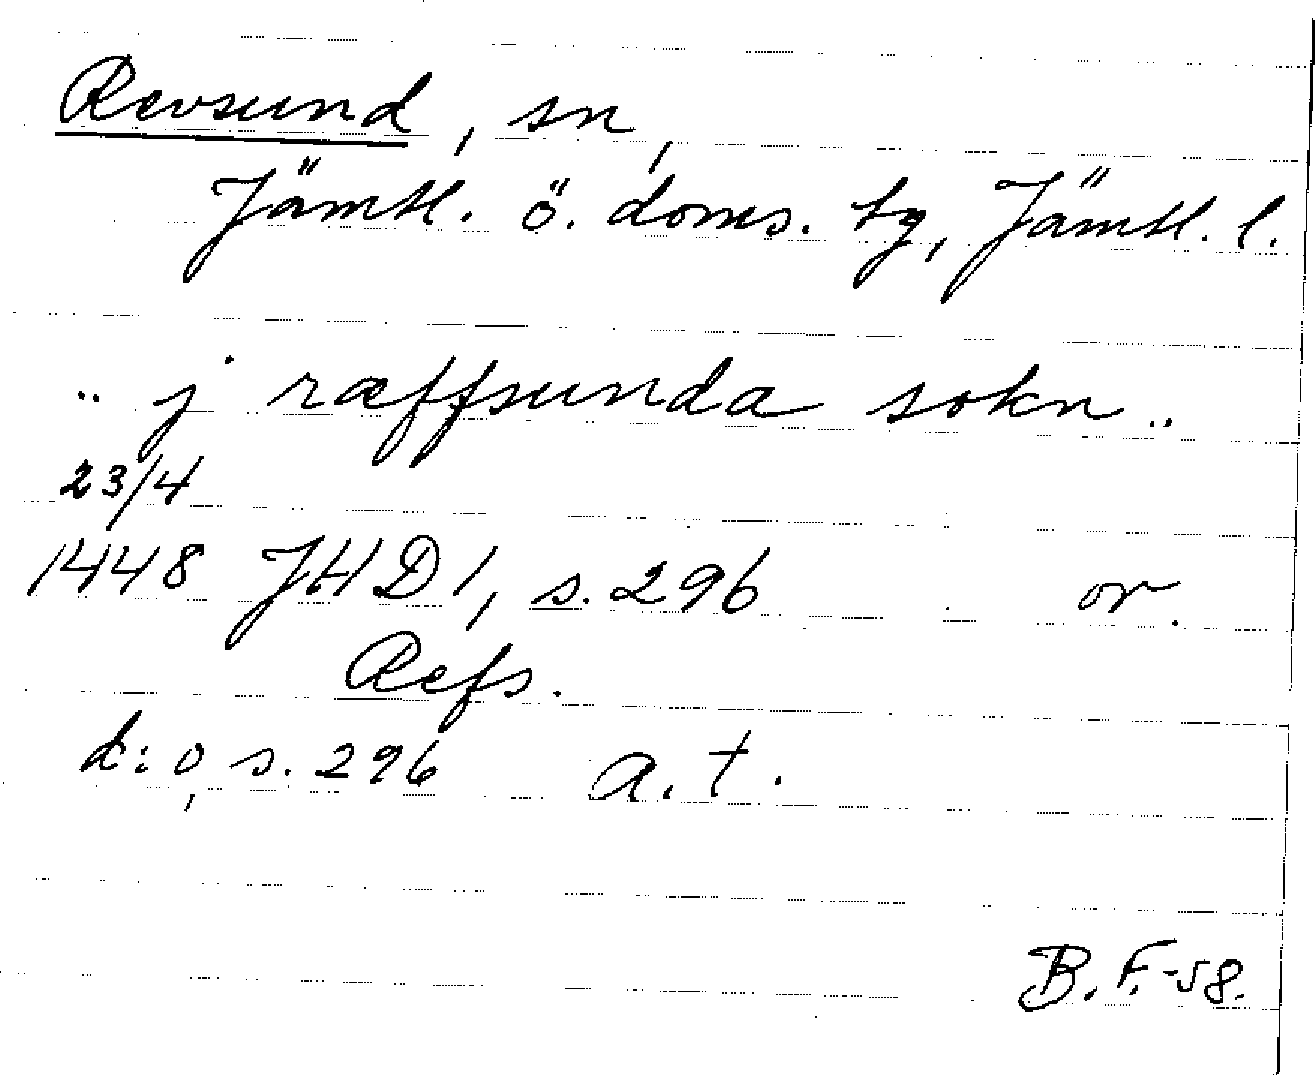 Revsund, sn,
Jämtl. ö. doms. tg, Jämtl. l.
.. j ræffsunda sokn ..
23/4
1448 JHD 1, s. 296 or.
Refs.
d:o, s. 296 a. t.
B. F. -58.